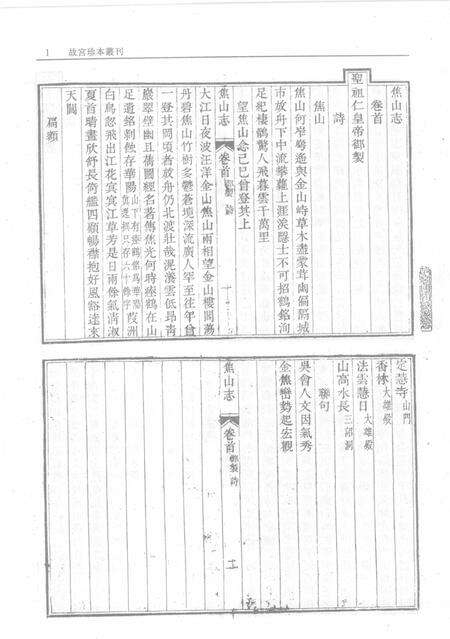 1 故宮珍本叢刊
焦山志
卷首
聖祖仁皇帝御製
詩
焦山
焦山何崒嵂遙與金山峙草木盡蒙茸幽偏隔城
市放舟下中流攀蘿上涯涘隱士不可招鶴銘洵
足紀棲鶻驚人飛暮雲千萬里
望焦山念己巳曾登其上
焦山志 卷首 御製 詩
大江日夜波汪洋金山焦山兩相望金山樓閣蕩
丹碧焦山竹樹多鬱蒼境深流廣人罕至往年曾
一登其間頃者放舟仍北渡壯哉滉瀁雲低昂靑
巖翠壁幽且蒨圖經名著傳焦光何時瘞鶴在山
足遺銘剝蝕存華陽
白鳥忽飛出江花寔寔江草芳是日雨餘氣淸淑
夏首晴晝欣舒長倚檻四顧暢襟抱好風谿達來
天閶
扁額
定慧寺 山門
香林 大雄殿
法雲慧日 大雄殿
山高水長 三詔洞
聯句
吳會人文因氣秀
金焦巒勢起宏觀
焦山志 卷首 御製 詩